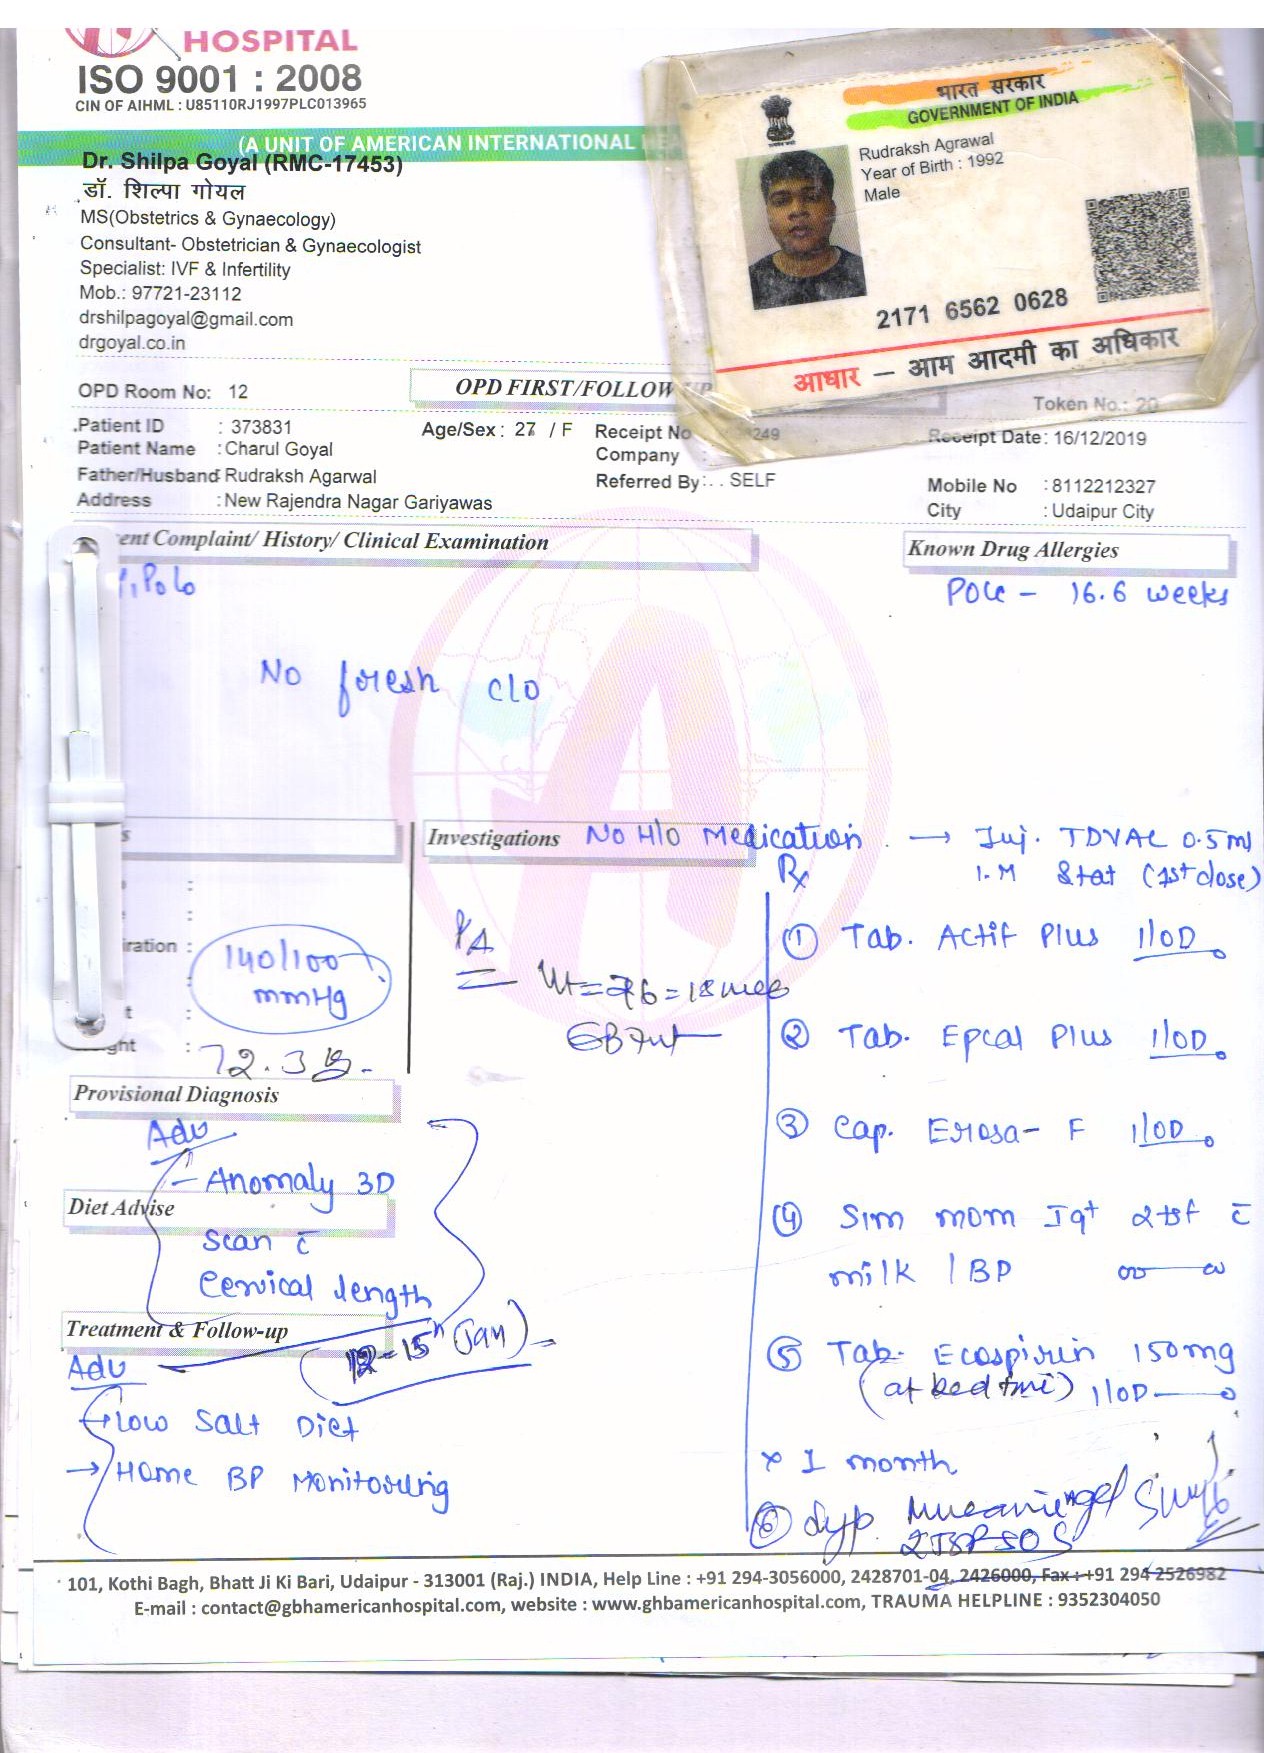 HOSPITAL
ISO 9001 : 2008
CIN OF AIHML : U85110RJ1997PLC013965
(A UNIT OF AMERICAN INTERNATIONAL HEA
Dr. Shilpa Goyal (RMC-17453)
डॉ. शिल्पा गोयल
MS(Obstetrics & Gynaecology)
Consultant- Obstetrician & Gynaecologist
Specialist: IVF & Infertility
Mob.: 97721-23112
drshilpagoyal@gmail.com
drgoyal.co.in
भारत सरकार
GOVERNMENT OF INDIA
Rudraksh Agrawal
Year of Birth : 1992
Male
2171 6562 0628
आधार – आम आदमी का अधिकार
OPD Room No: 12
OPD FIRST/FOLLOW UP
Token No.: 20
Patient ID : 373831 Age/Sex : 27 / F Receipt No 249 Receipt Date: 16/12/2019
Patient Name : Charul Goyal Company :
Father/Husband: Rudraksh Agarwal Referred By: . . SELF Mobile No : 8112212327
Address : New Rajendra Nagar Gariyawas City : Udaipur City
ent Complaint/ History/ Clinical Examination Known Drug Allergies
POG - 16.6 weeks
No fresh c/o
Investigations No H/o Medication → Inj. TDVAC 0.5ml
Rx I.M Stat (1st dose)
iration :
140/100
mmHg
ght : 72.3
P/A
① Tab. Actif Plus 1/OD
② Tab. Epcal Plus 1/OD
③ Cap. Erosa- F 1/OD
④ Sim mom 2tsf c̄
milk / BP
⑤ Tab. Ecospirin 150mg
(at bed time) 1/OD
x 1 month
⑥ Syp. Mucainegel
2TSP SOS
Provisional Diagnosis
Adv
- Anomaly 3D
Diet Advise
Scan c̄
Cervical length
Treatment & Follow-up
15th Jan)
Adv
→ low Salt Diet
→ Home BP Monitoring
101, Kothi Bagh, Bhatt Ji Ki Bari, Udaipur - 313001 (Raj.) INDIA, Help Line : +91 294-3056000, 2428701-04, 2426000, Fax : +91 294 2526982
E-mail : contact@gbhamericanhospital.com, website : www.ghbamericanhospital.com, TRAUMA HELPLINE : 9352304050